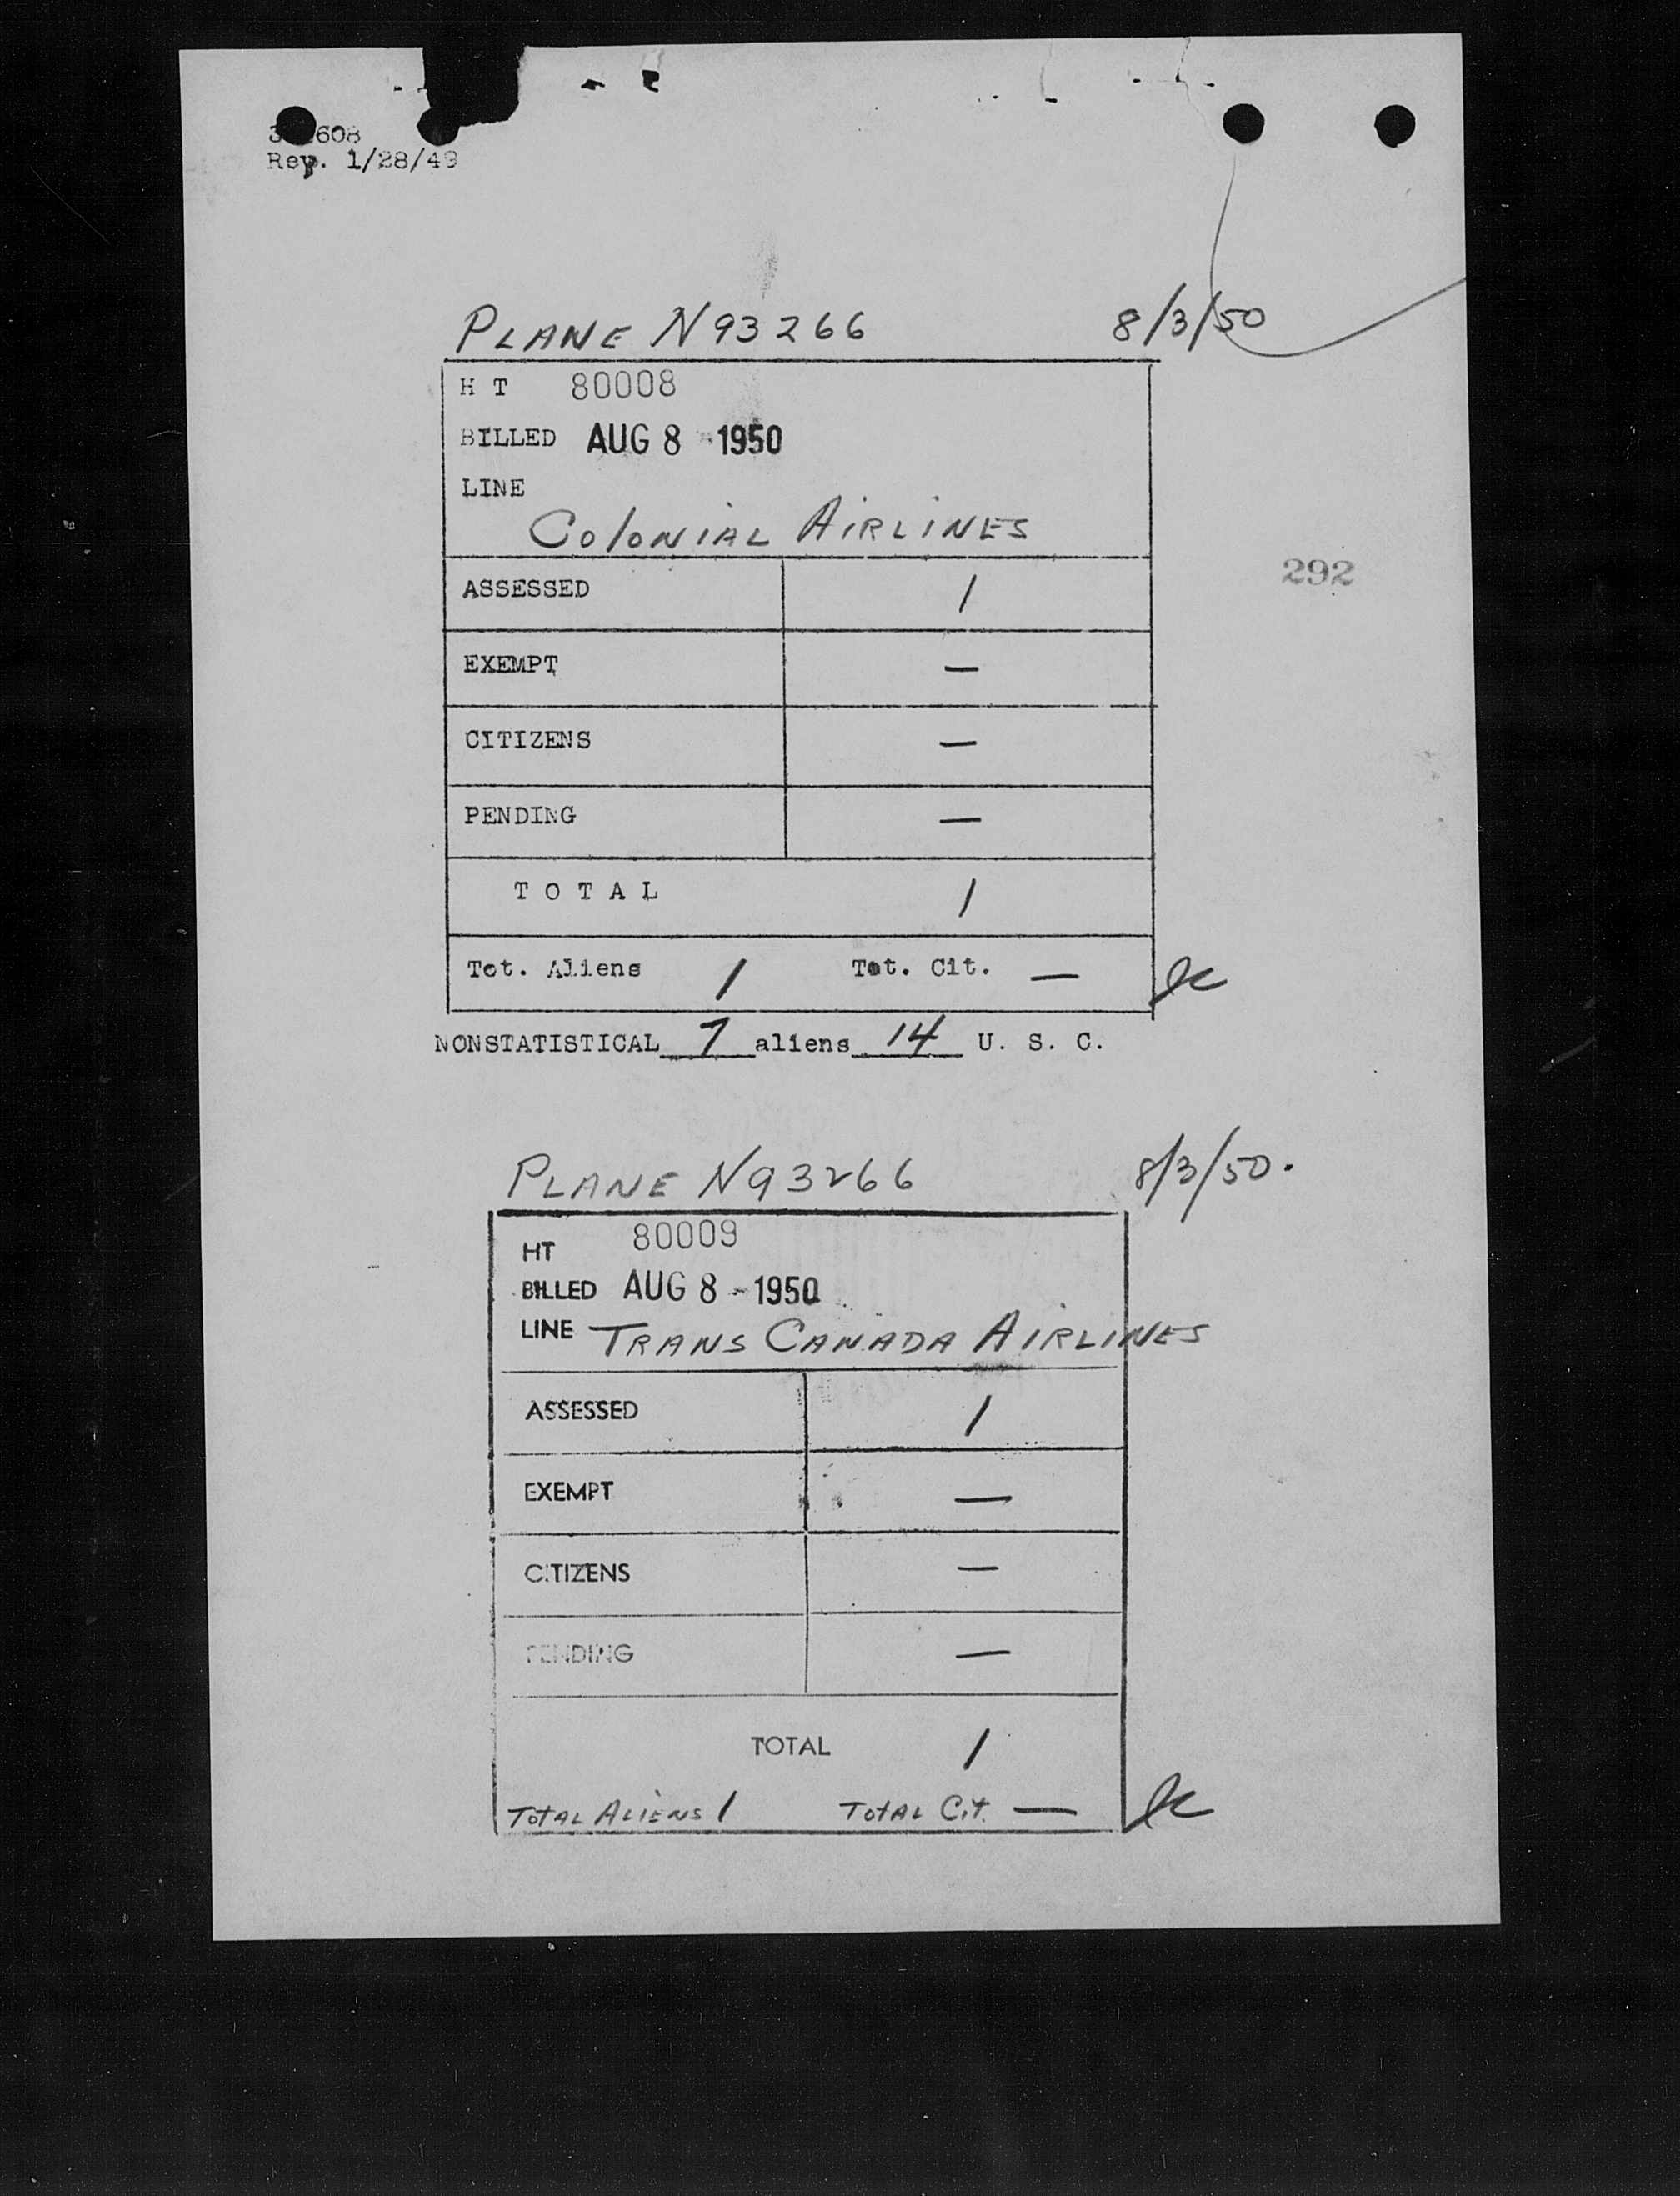 608
Rev. 1/28/49
PLANE N93266 8/3/50
H T 80008
BILLED AUG 8 - 1950
LINE
COLONIAL AIRLINES
292
ASSESSED 1
EXEMPT —
CITIZENS —
PENDING —
T O T A L 1
Tot. Aliens 1 Tot. Cit. —
NONSTATISTICAL 7 aliens 14 U. S. C.
PLANE N93266 8/3/50.
HT 80009
BILLED AUG 8 - 1950
LINE TRANS CANADA AIRLINES
ASSESSED 1
EXEMPT —
CITIZENS —
PENDING —
TOTAL 1
TOTAL ALIENS 1 TOTAL Cit. —